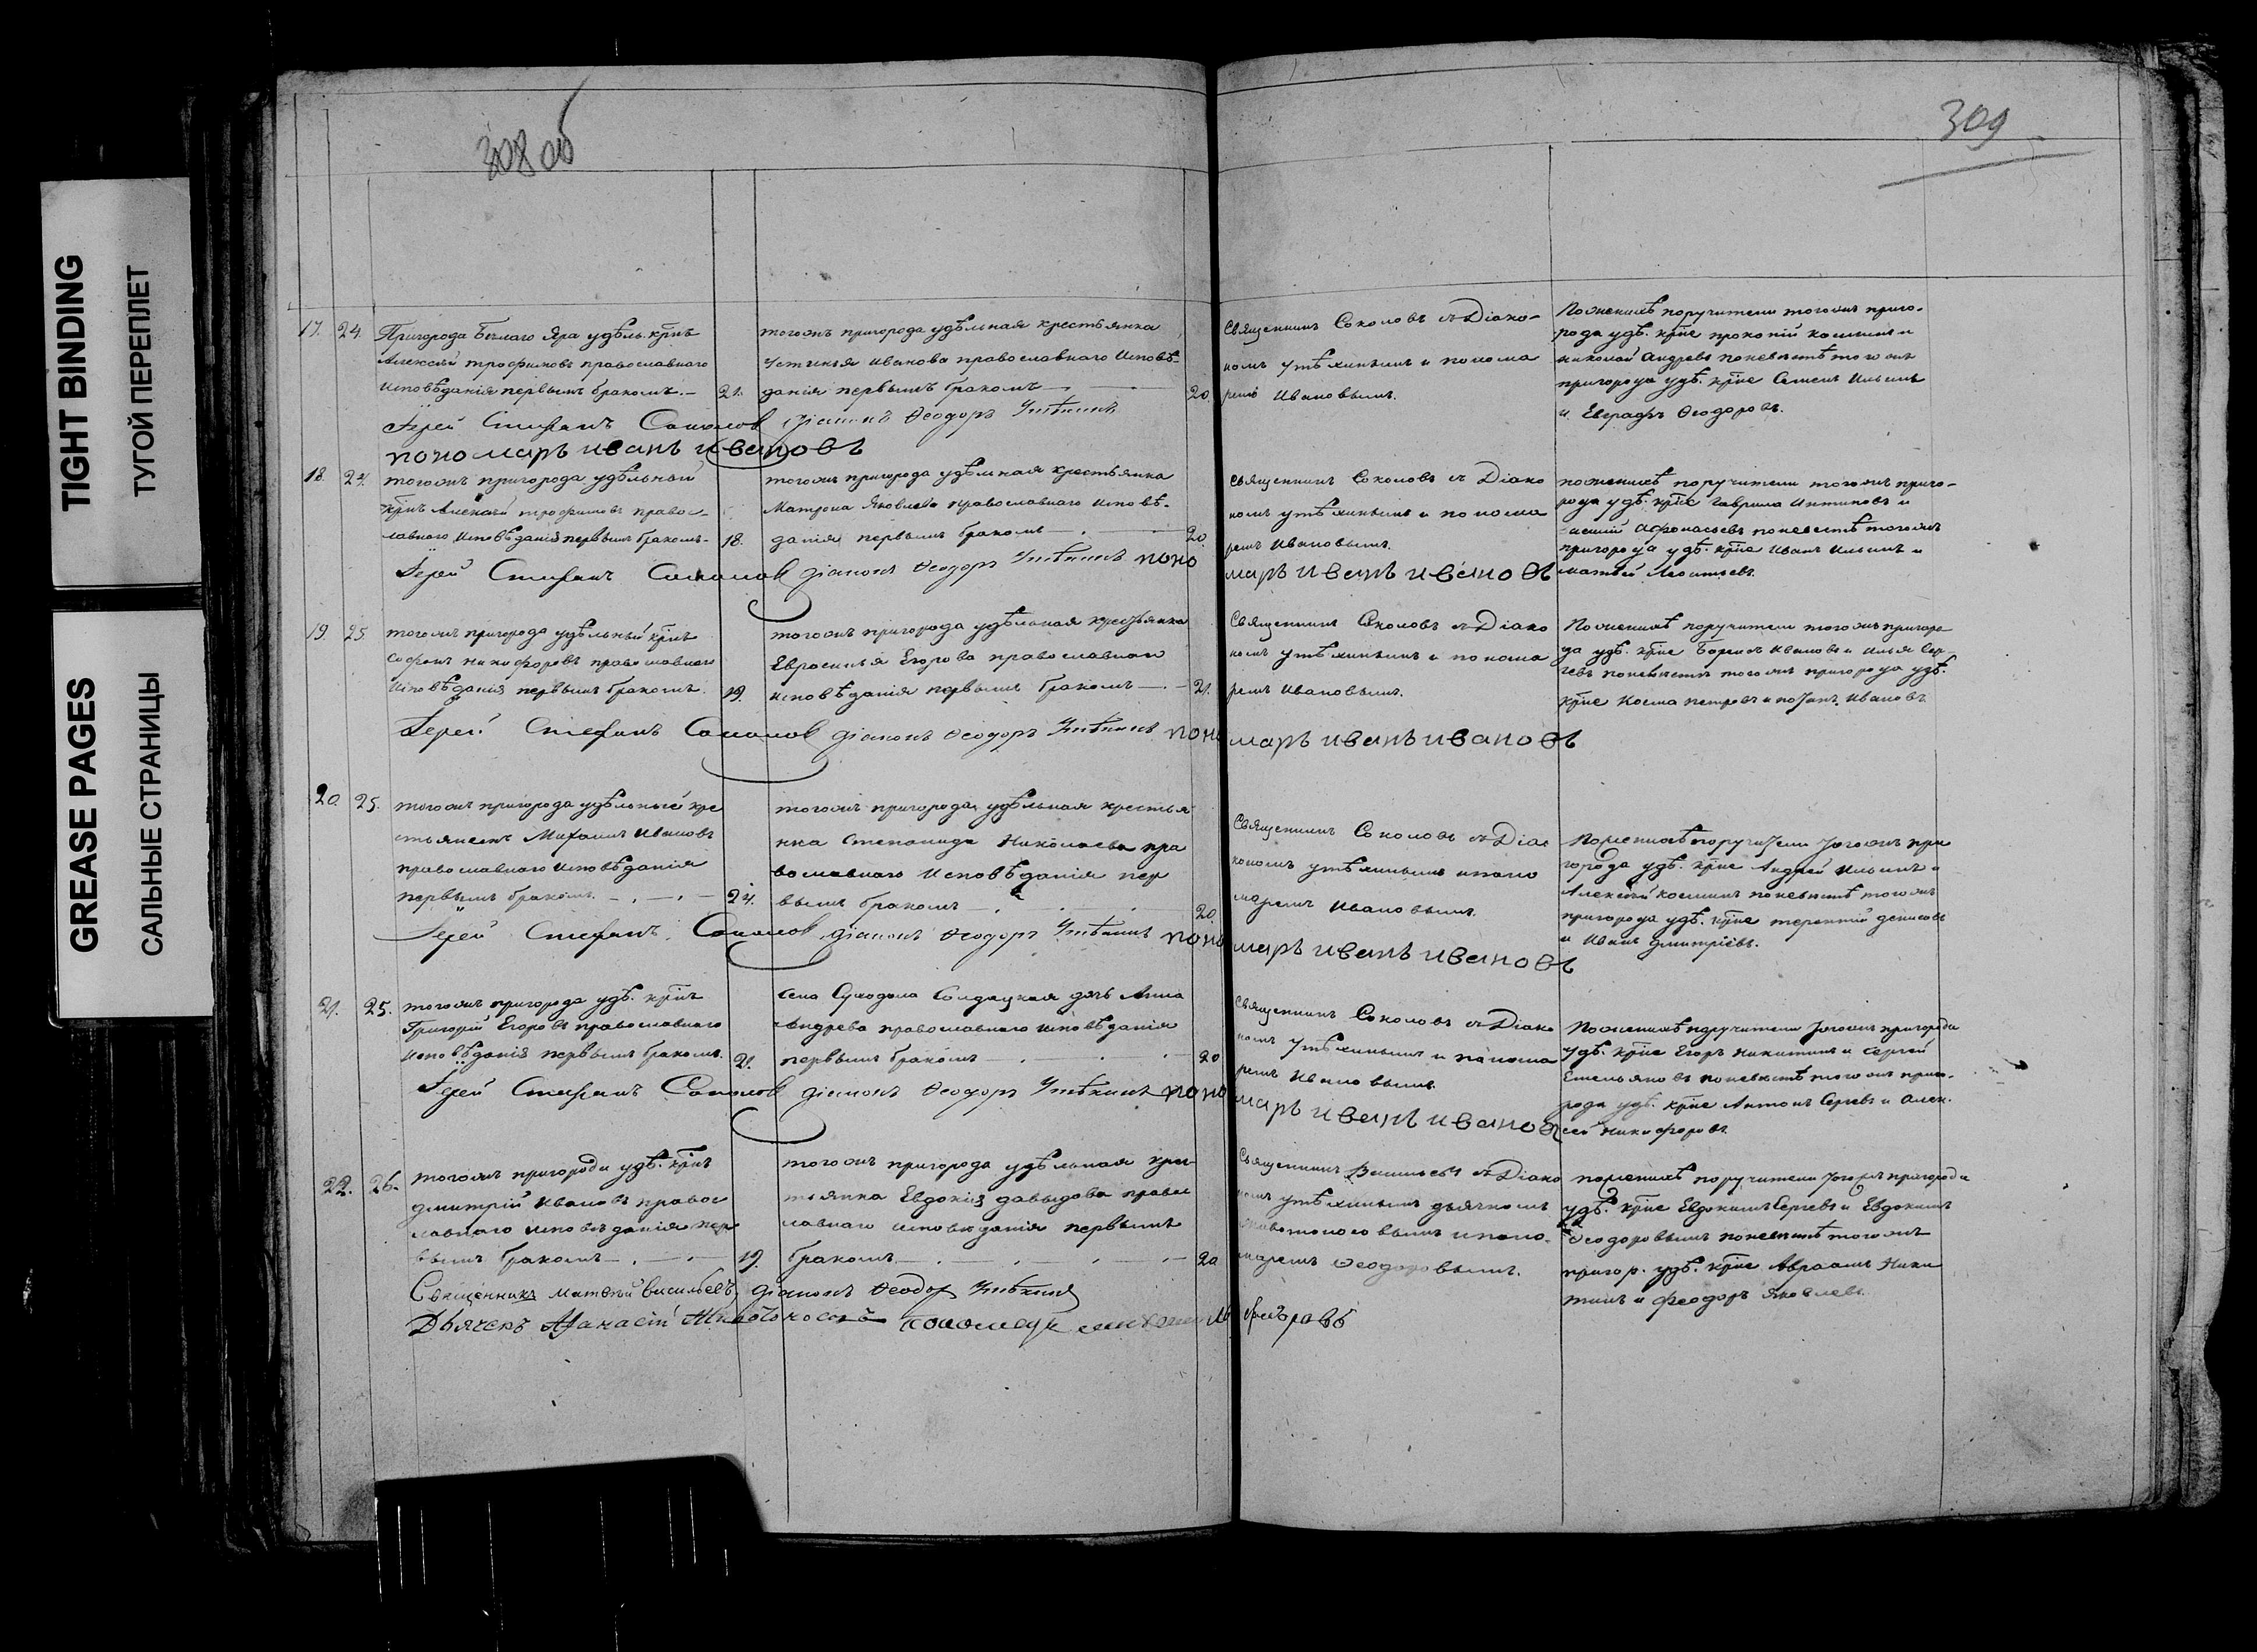 TIGHT BINDING
ТУГОЙ ПЕРЕПЛЕТ
GREASE PAGES
САЛЬНЫЕ СТРАНИЦЫ
308 об
309
17. 24. Пригорода Белаго Яра удѣль. крнъ
Алексѣй трофимовъ православнаго
исповѣданія первымъ бракомъ. 21.
тогожъ пригорода удѣльная крестьянка
Устинья Иванова православнаго исповѣ-
данія первымъ бракомъ 20.
Священникъ Соколовъ съ Діако-
номъ Утѣхинымъ и понома
ремъ Ивановымъ.
Поженихѣ поручители тогожъ приго-
рода удѣ. крне прокопій косминъ и
николай андревъ поневѣстѣ тогожъ
пригорода удѣ. крне Семенъ Ильинъ
и Евграфъ Ѳеодоровъ.
Іерей Стефанъ Соколов діаконъ Ѳеодоръ Утѣхинъ
пономарь иванъ ивановъ
18. 24. тогожъ пригорода удѣльный
крнъ Алексѣй трофимовъ правос-
лавнаго исповѣданія первымъ бракомъ 18.
тогожъ пригорода удѣльная крестьянка
Матрона Яковлева православнаго исповѣ-
данія первымъ бракомъ 20.
Священникъ Соколовъ съ Діако
номъ утѣхинымъ и понома
ремъ Ивановымъ.
поженихѣ поручители тогожъ приго-
рода удѣ. крне Гаврила
афонасьевъ поневестѣ тогожъ
пригорода удѣ. крне Иванъ Ильинъ и
матвей Леонтьевъ.
Іерей Стефанъ Соколов діаконъ Ѳеодоръ Утѣхинъ поно
марь иванъ ивановъ
19. 25 тогожъ пригорода удѣльный крнъ
Софонъ никифоровъ православнаго
исповѣданія первымъ бракомъ. 19.
тогожъ пригорода удѣльная крестьянка
Евросинья Егорова православнаго
исповѣданія первымъ бракомъ 21.
Священникъ Соколовъ съ Діако
номъ утѣхинымъ и понома
ремъ Ивановымъ.
Поженихѣ поручители тогожъ пригоро-
да удѣ. крне Борисъ Ивановъ и Илья Сер-
гевъ поневестѣ тогожъ пригорода удѣ.
крне Косма петровъ и потапъ Ивановъ
Іерей Стефанъ Соколов діаконъ Ѳеодоръ Утѣхинъ поно
марь иванъ ивановъ
20. 25. тогожъ пригорода удѣльный кре
стьянинъ Михаилъ Ивановъ
православнаго исповѣданія
первымъ бракомъ. 24.
тогожъ пригорода удѣльная крестья
нка Степанида Николаева пра
вославнаго исповѣданія пер
вымъ бракомъ 20.
Священникъ Соколовъ съ Діа
кономъ утѣхинымъ ипоно
маремъ Ивановымъ.
Поженихѣ поручители тогожъ при
города удѣ. крне Андрей Ильинъ и
Алексѣй косминъ поневестѣ тогожъ
пригорода удѣ. крне терентій денисовъ
и Иванъ дмитріевъ.
Іерей Стефанъ Соколов діаконъ Ѳеодоръ Утѣхинъ поно
марь иванъ ивановъ
21. 25. тогожъ пригорода удѣ. крнъ
Григорій Егоровъ православнаго
исповѣданія первымъ бракомъ. 21.
села Суходола Солдацкая дочь Анна
Андрева православнаго исповѣданія
первымъ бракомъ 20
Священникъ Соколовъ съ Діако
номъ Утѣхинымъ и понома
ремъ Ивановымъ.
Поженихѣ поручители тогожъ пригорода
Удѣ. крне Егоръ Никитинъ и Сергей
Емельяновъ поневестѣ тогожъ приго-
рода удѣ. крне Антонъ Сергевъ и Алек-
сей Никифоровъ.
Іерей Стефанъ Соколов діаконъ Ѳеодоръ Утѣхинъ поно
марь иванъ ивановъ
22. 26. тогожъ пригорода удѣ. крнъ
дмитрій Ивановъ правос
лавнаго исповѣданія пер
вымъ бракомъ 19.
тогожъ пригорода удѣльная крес
тьянка Евдокія давыдова правос
лавнаго исповѣданія первымъ
бракомъ 20
Священникъ Васильевъ съ Діако
номъ утѣхинымъ дьячкомъ
ипоно-
маремъ Ѳеодоровымъ.
поженихѣ поручители тогожъ пригорода
удѣ. крне Евдокимъ Сергевъ и Евдокимъ
Ѳеодоровымъ поневестѣ тогожъ
пригор. удѣ. крне Авраамъ Ники
тинъ и феодоръ Яковлевъ.
Священникъ Матѳей Васильевъ, діаконъ Ѳеодор Утѣхинъ
Дьячекъ Афанасій пономарь